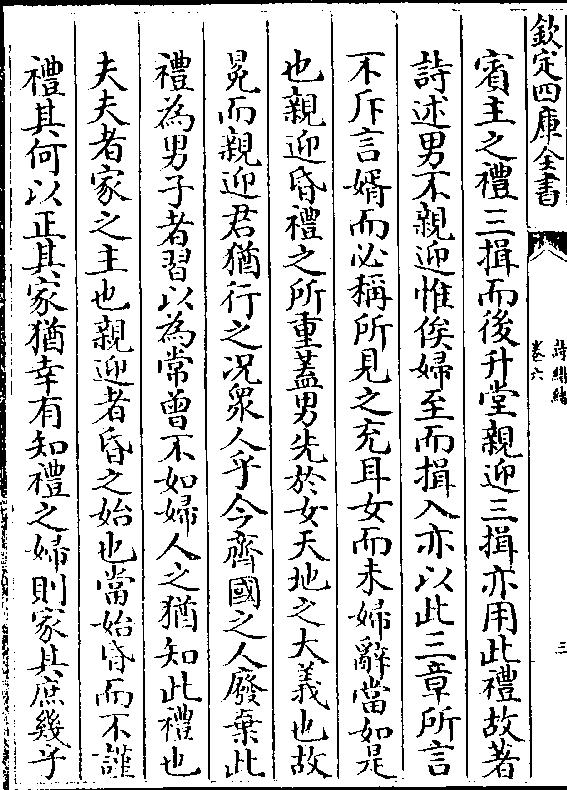 欽定四庫全書
詩纘緒
卷六
三
賓主之禮三揖而後升堂親迎三揖亦用此禮故著
詩述男不親迎惟俟婦至而揖入亦以此三章所言
不斥言婿而必稱所見之充耳女而未婦辭當如是
也親迎昏禮之所重蓋男先於女天地之大義也故
冕而親迎君猶行之况衆人乎今齊國之人廢棄此
禮為男子者習以為常曾不如婦人之猶知此禮也
夫夫者家之主也親迎者昏之始也當始昏而不謹
禮其何以正其家猶幸有知禮之婦則家其庶幾乎